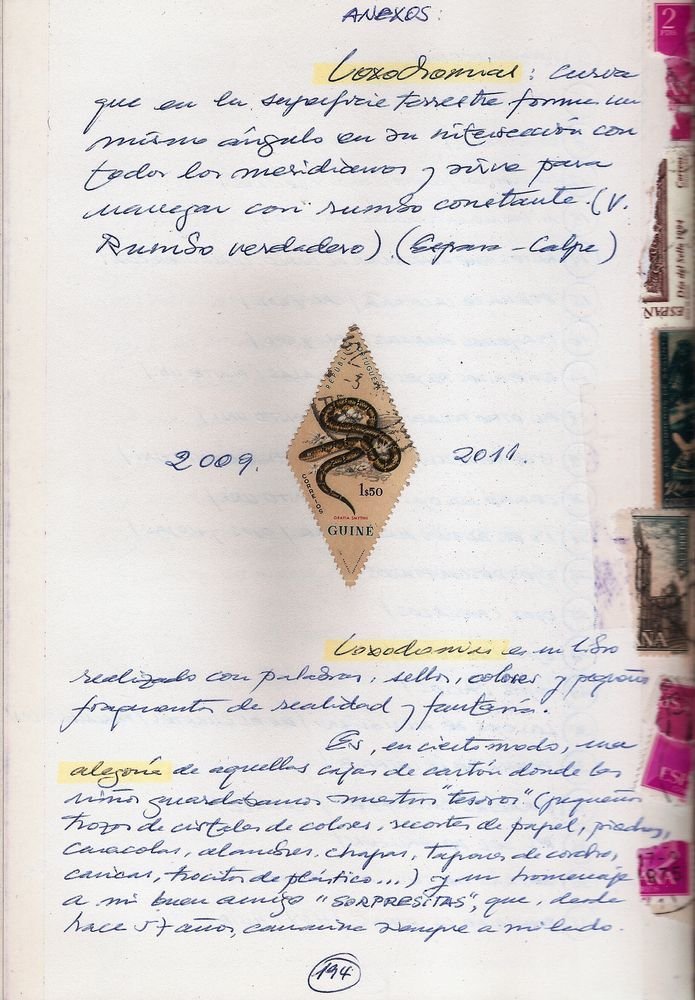 ANEXOS:
Loxodromias: curva
que en la superficie terrestre forma un
mismo ángulo en su intersección con
todos los meridianos y sirve para
navegar con rumbo constante. (V.
Rumbo verdadero) (Espasa-Calpe)
REPÚBLICA PORTUGUESA
CORREIOS
1$50
GRAYIA SMYTHII
GUINÉ
2009.
2011.
Loxodromias es un libro
realizado con palabras, sellos, colores y pequeños
fragmentos de realidad y fantasía.
Es, en cierto modo, una
alegoría de aquellas cajas de cartón donde los
niños guardábamos nuestros "tesoros" (pequeños
trozos de cristales de colores, recortes de papel, piedras,
caracolas, alambres, chapas, tapones de corcho,
canicas, trocitos de plástico...) y un homenaje
a mi buen amigo "SORPRESITAS", que, desde
hace 57 años, camina siempre a mi lado.
194
2
PTAS
Correos
Día del Sello 1974
ESPAÑ
NA
ESP